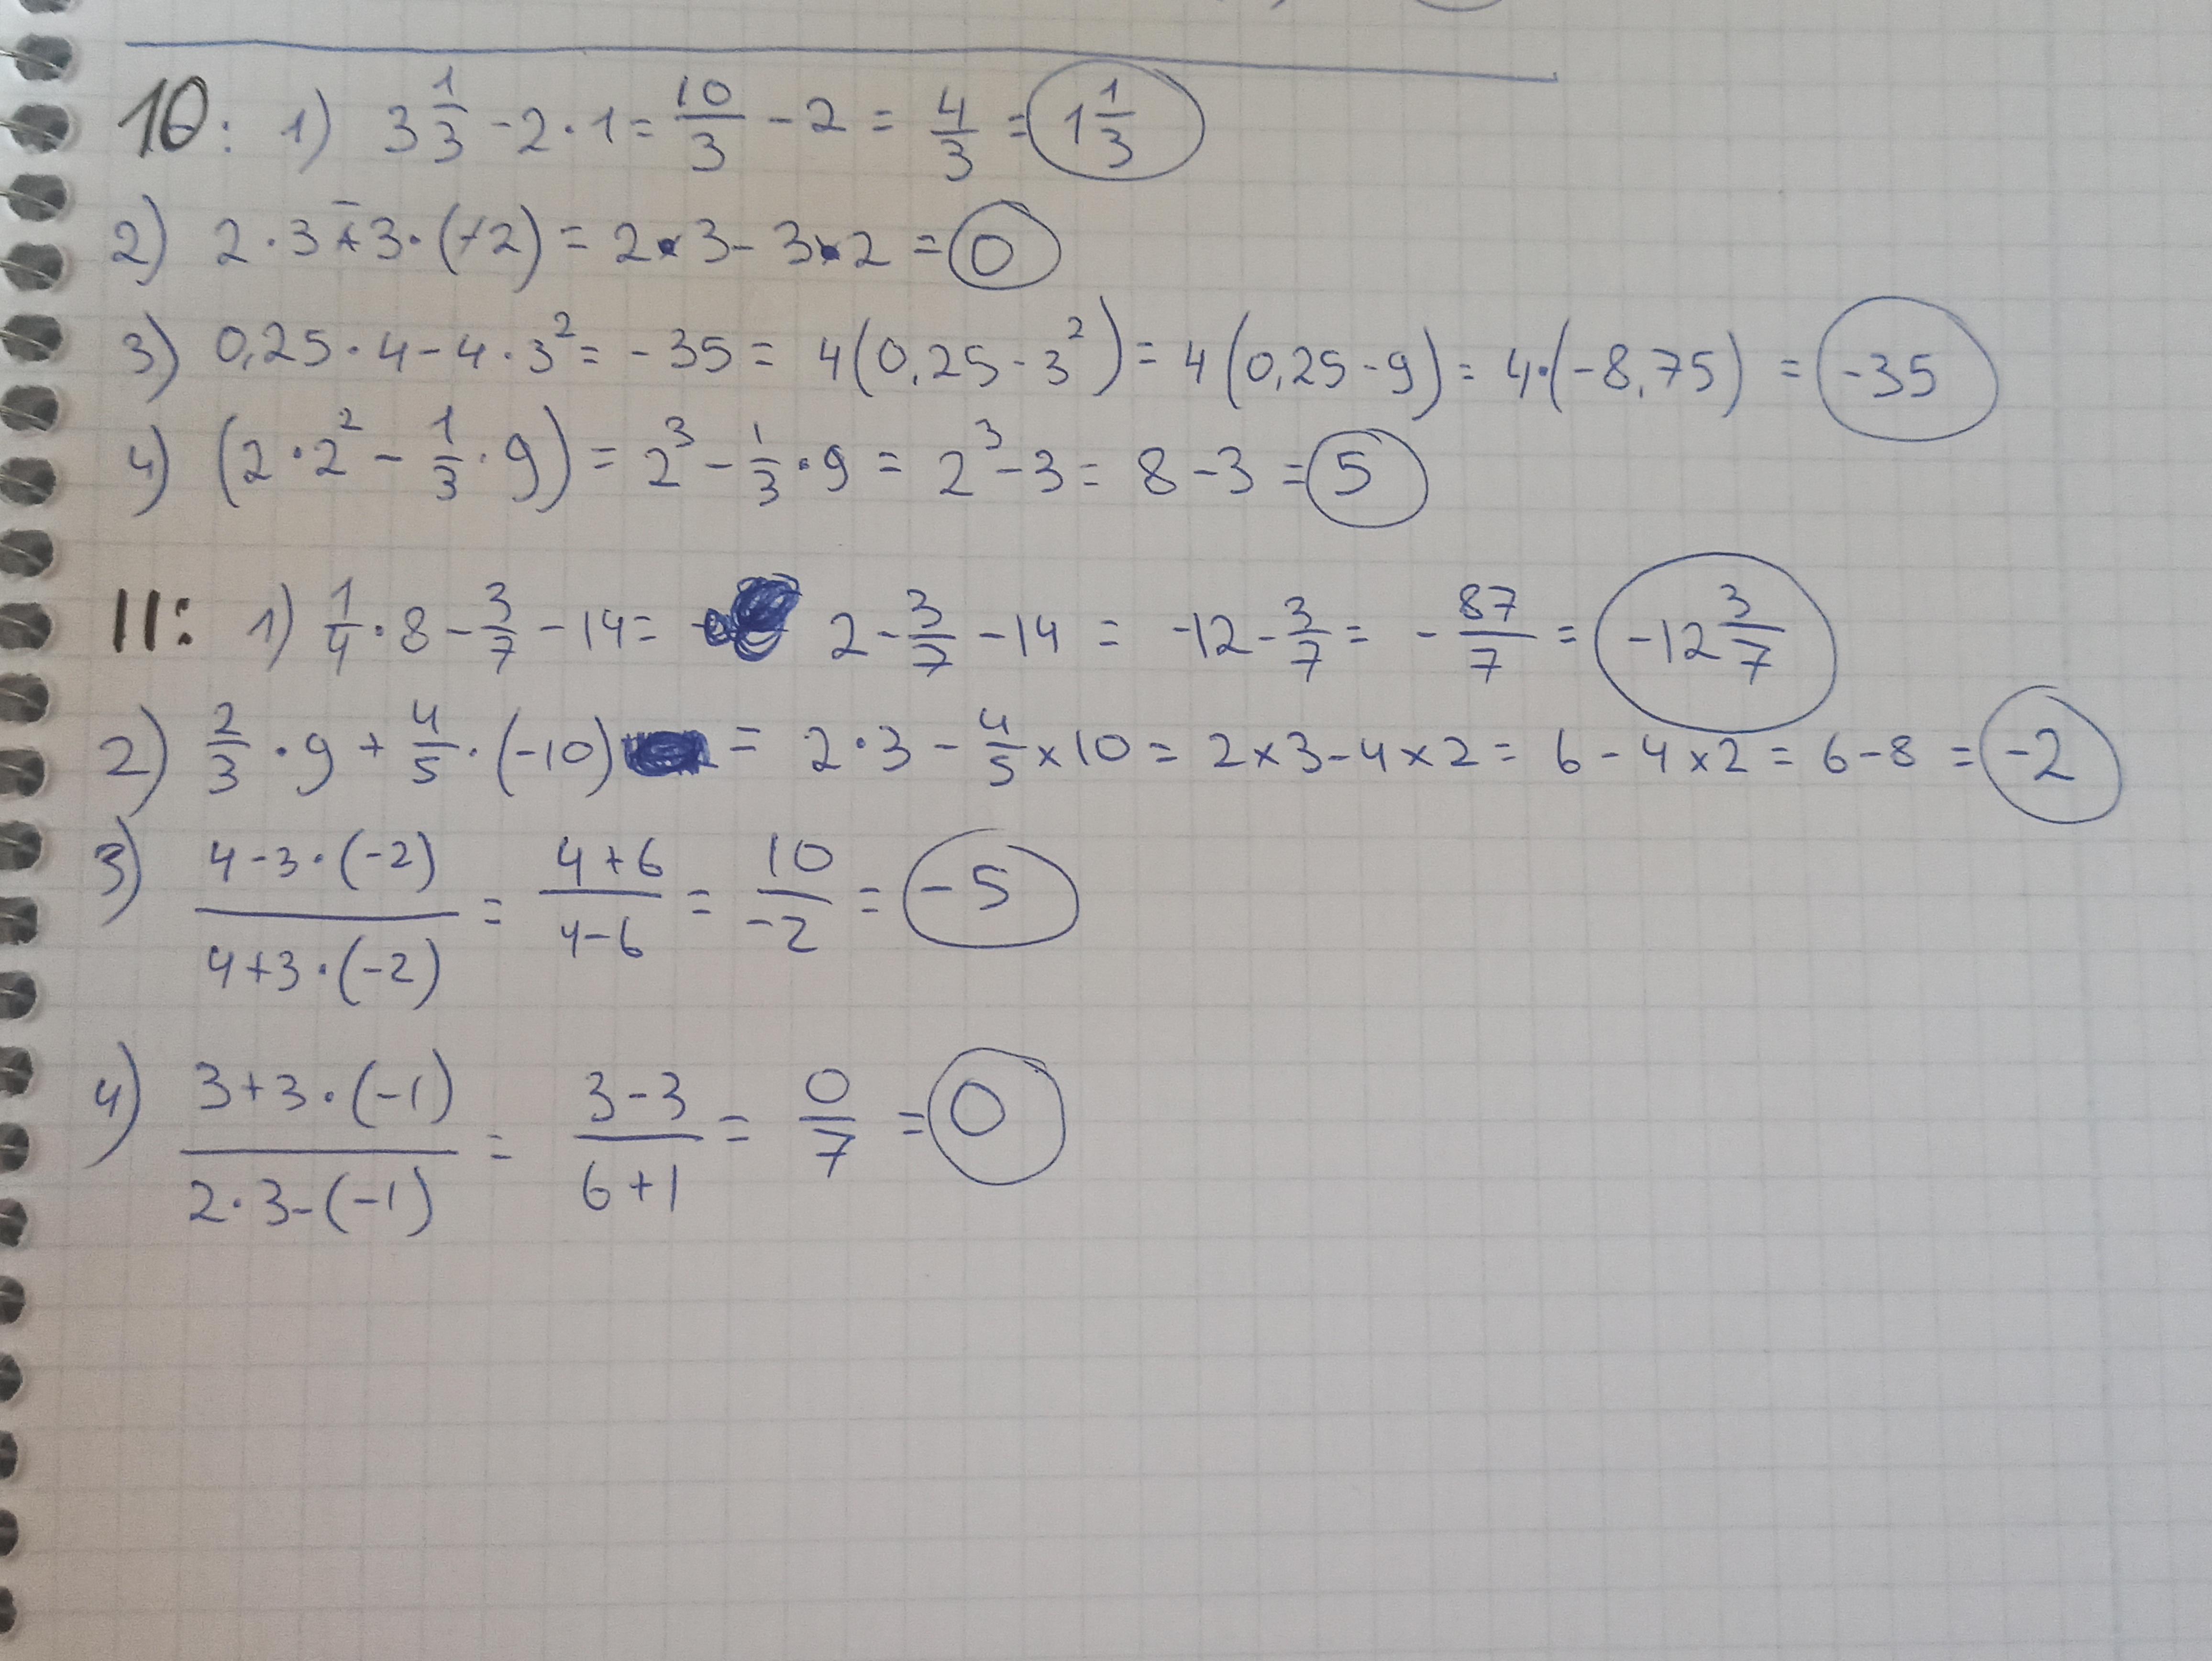 10: 1) 3 1/3 - 2 · 1 = 10/3 - 2 = 4/3 = 1 1/3
2) 2 · 3 + 3 · (-2) = 2 · 3 - 3 · 2 = 0
3) 0,25 · 4 - 4 · 3² = -35 = 4(0,25 - 3²) = 4(0,25 - 9) = 4 · (-8,75) = -35
4) (2 · 2² - 1/3 · 9) = 2³ - 1/3 · 9 = 2³ - 3 = 8 - 3 = 5
11: 1) 1/4 · 8 - 3/7 - 14 = 2 - 3/7 - 14 = -12 - 3/7 = - 87/7 = -12 3/7
2) 2/3 · 9 + 4/5 · (-10) = 2 · 3 - 4/5 × 10 = 2 × 3 - 4 × 2 = 6 - 4 × 2 = 6 - 8 = -2
3) (4 - 3 · (-2))/(4 + 3 · (-2)) = (4 + 6)/(4 - 6) = 10/-2 = -5
4) (3 + 3 · (-1))/(2 · 3 - (-1)) = (3 - 3)/(6 + 1) = 0/7 = 0